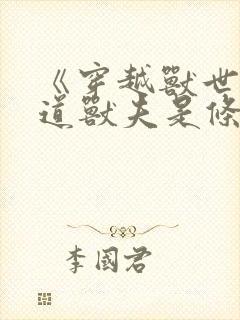 《穿越獸世
道獸夫是條
李國君